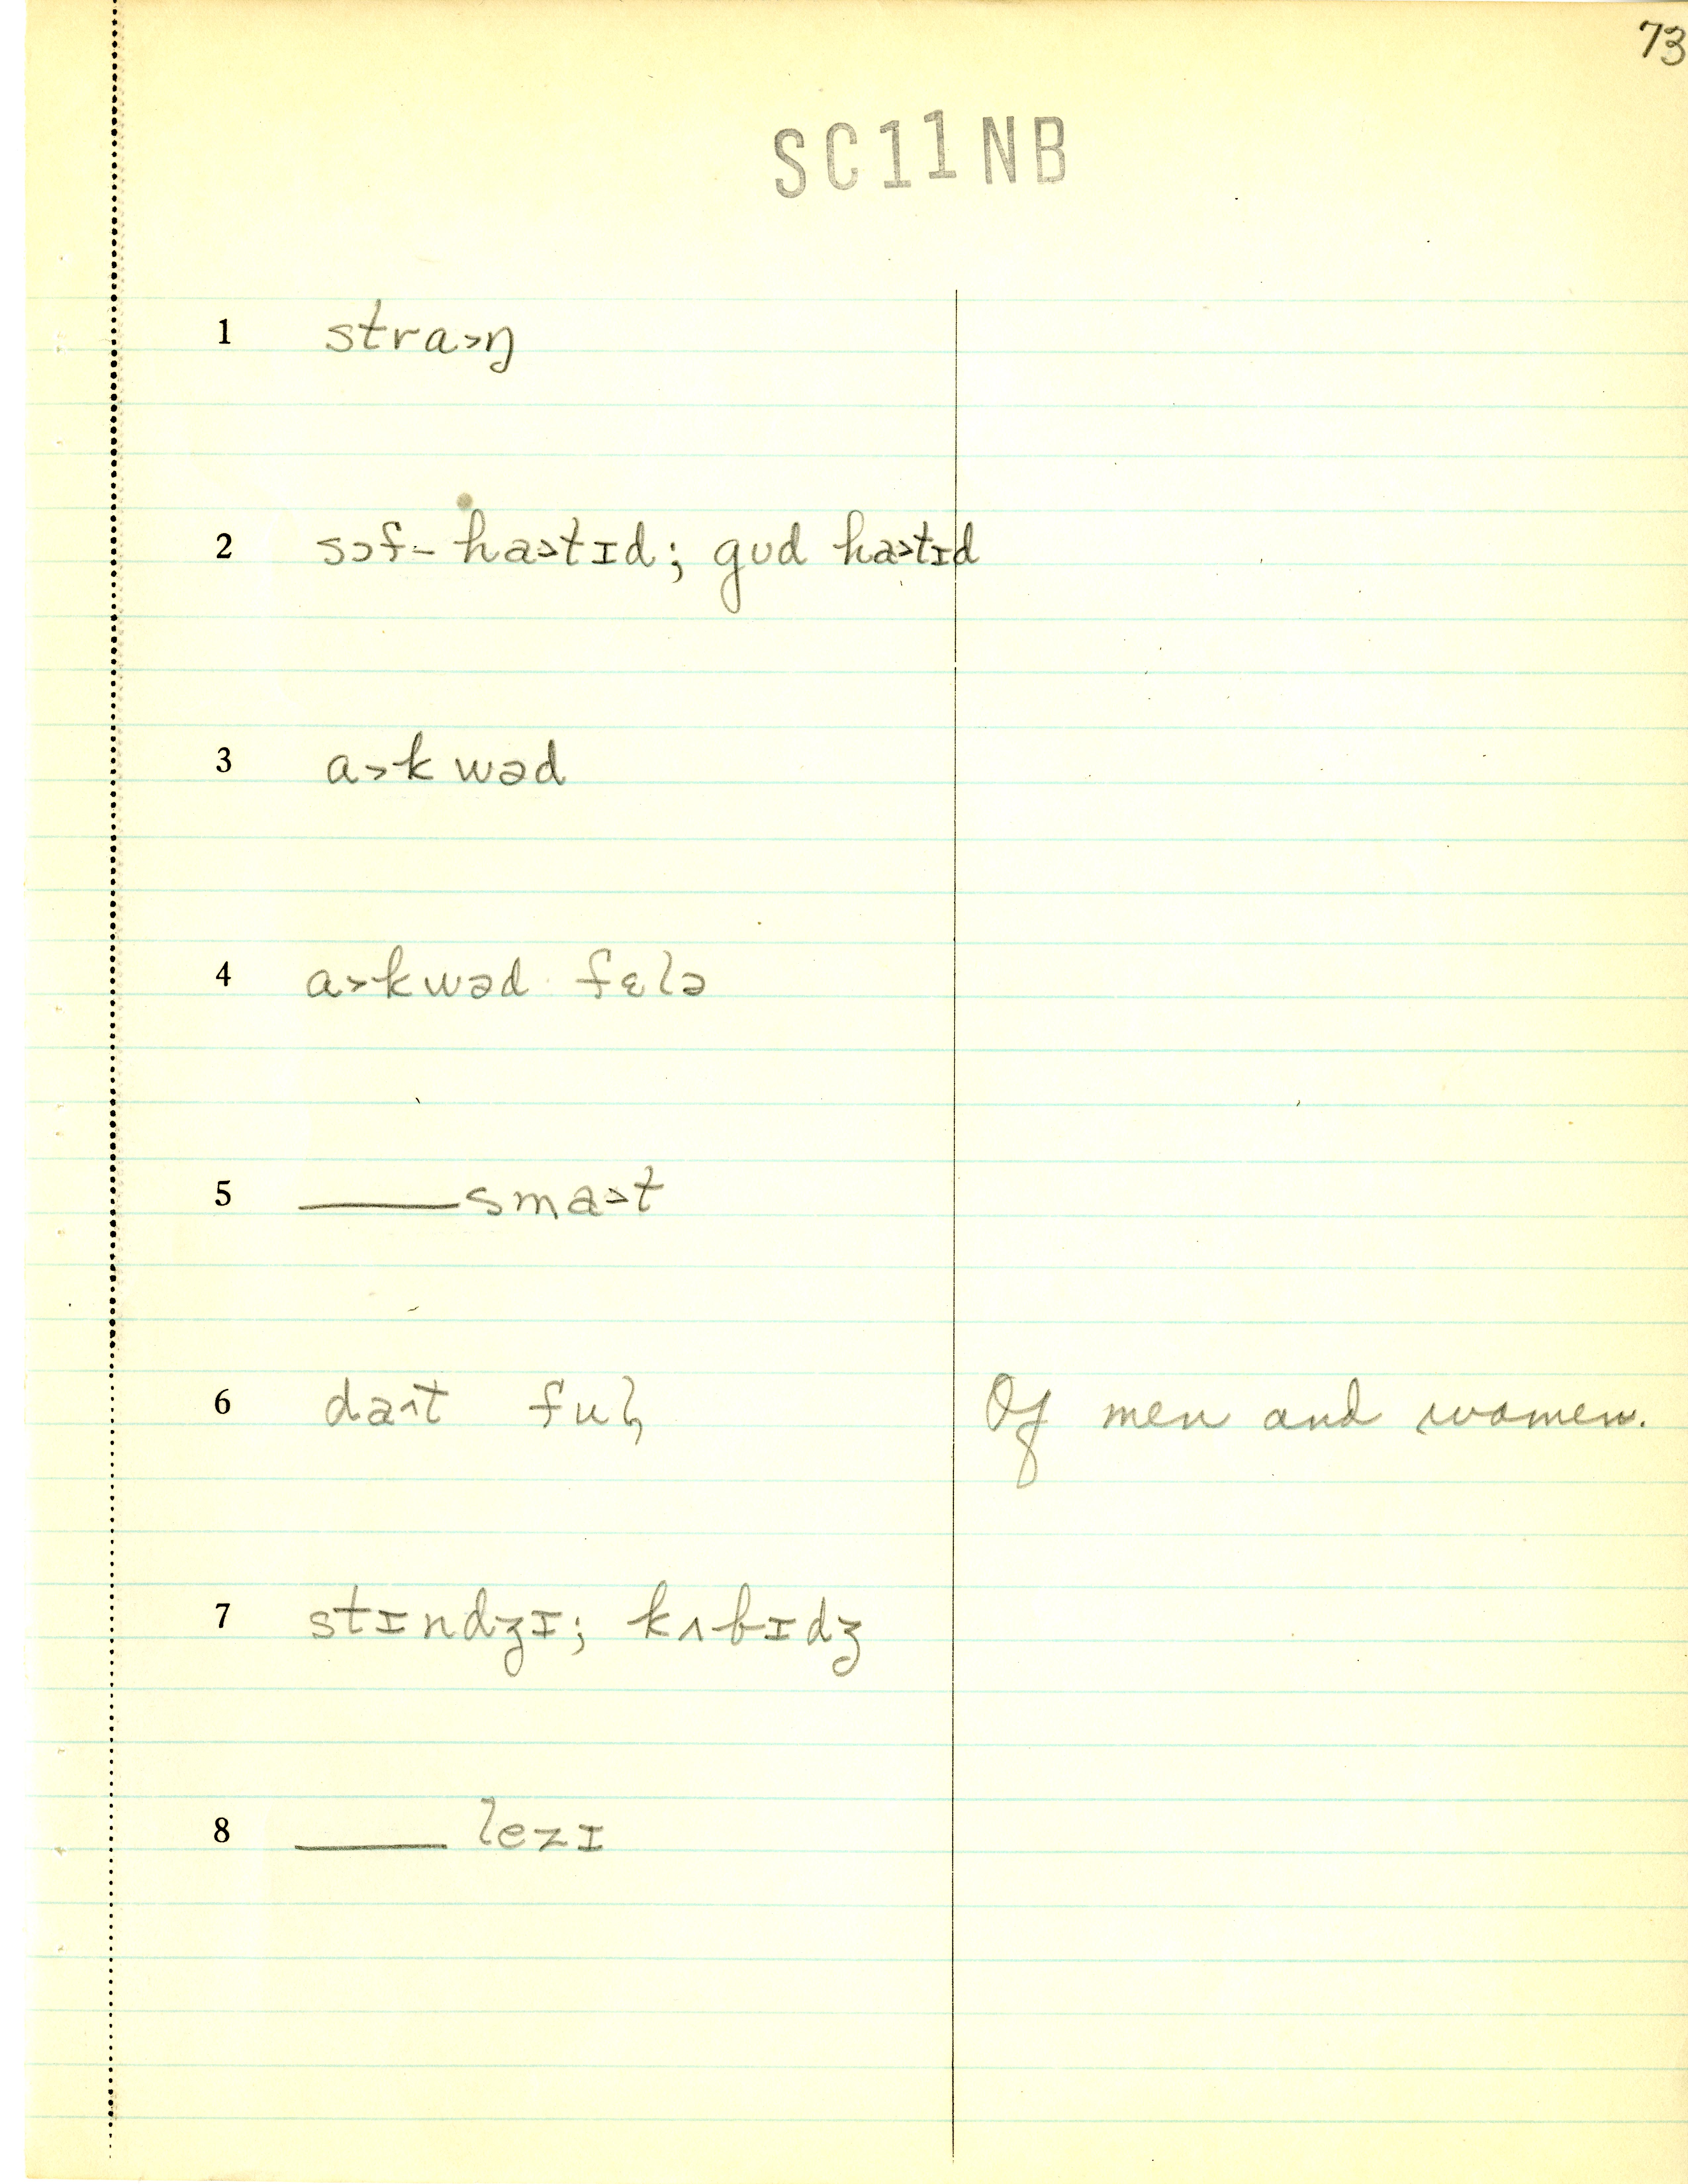 73
SC11NB
1 stra˃ŋ
2 sɔf- ha˃tɪd; gʊd ha˃tɪd
3 a˃kwəd
4 a˃kwəd fɛlə
5 ——— sma˃t
6 da˄t ful̩ Of men and women.
7 stɪndʒɪ; kʌbɪdʒ
8 ——— lezɪ